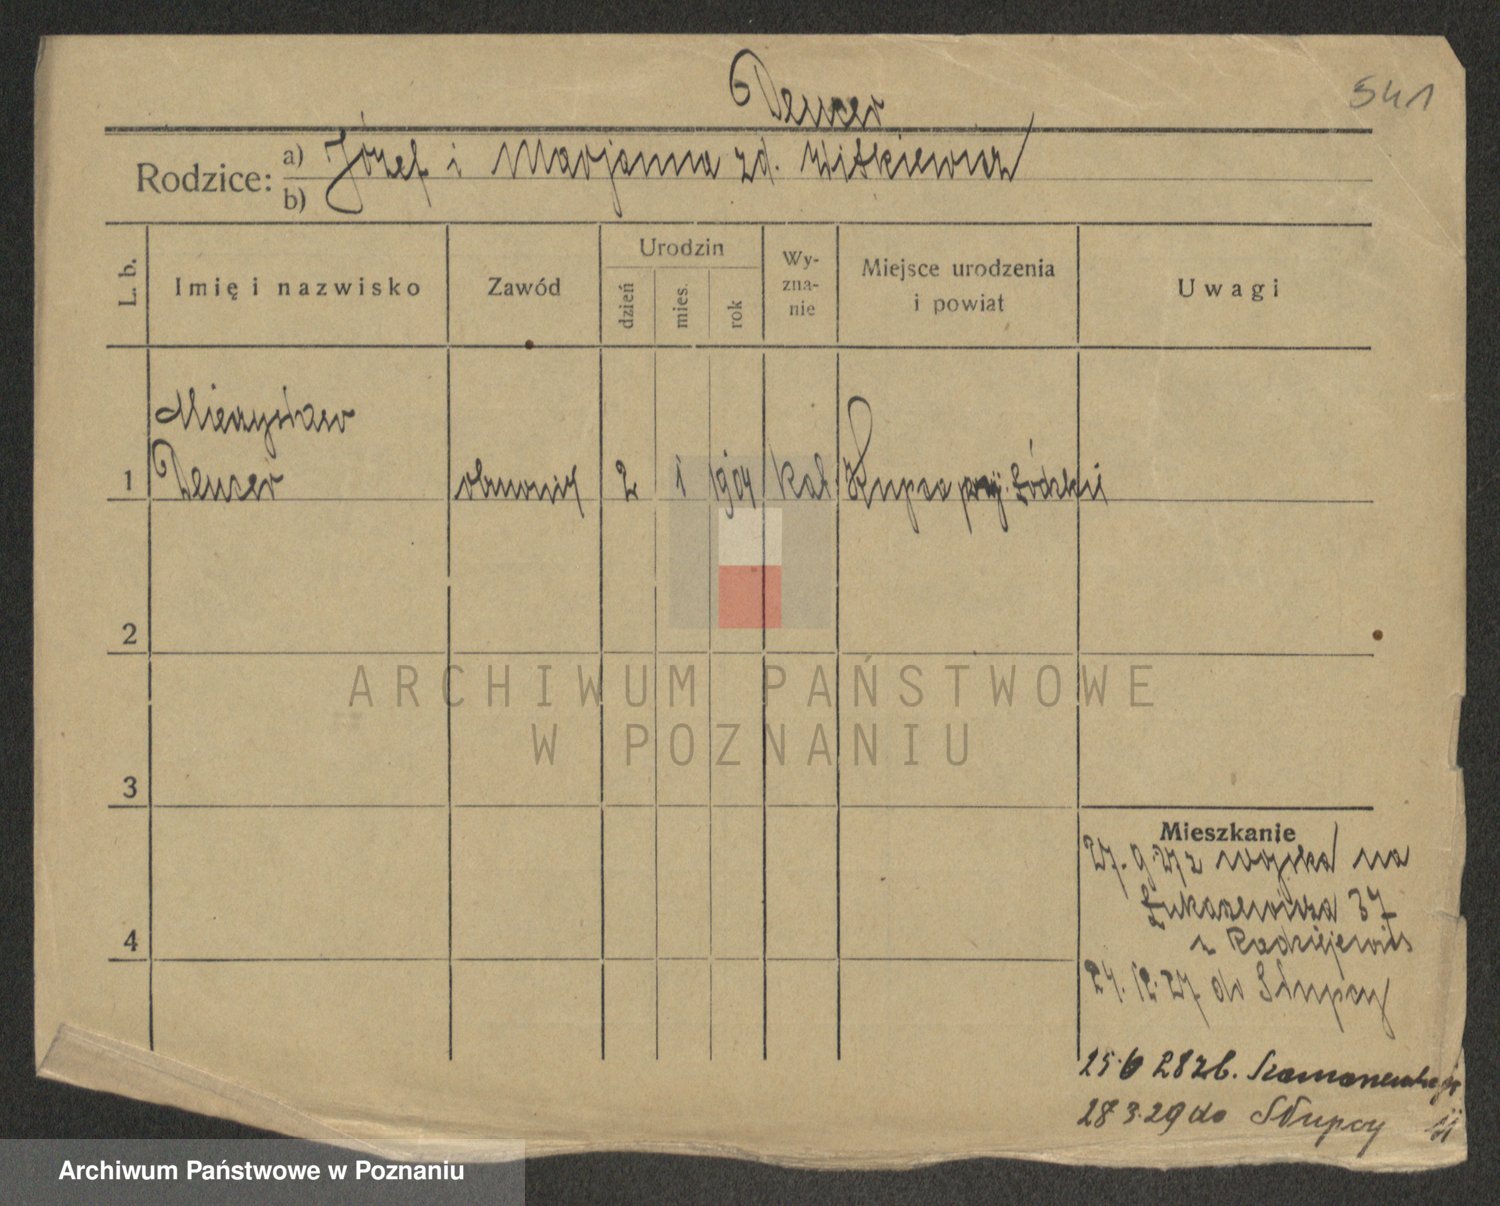 541
Dencer
Rodzice: a) Józef i Marjanna zd. Witkiewicz
b)
L. b. Imię i nazwisko Zawód Urodzin dzień mies. rok Wy-zna-nie Miejsce urodzenia i powiat Uwagi
Mieczysław
1 Dencer 2 1 1904 kat. Łódzkij
2
ARCHIWUM PAŃSTWOWE
W POZNANIU
3
Mieszkanie
27. 9 27 z wojska na
Łukaszewicza 37
z Radziejewits
24. 12. 27 do Słupcy
4
25 6 28 zb.
28 3. 29 do Słupcy
Archiwum Państwowe w Poznaniu